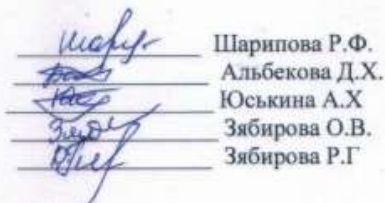 Шарипова Р.Ф.
Альбекова Д.Х.
Юськина А.Х
Зябирова О.В.
Зябирова Р.Г